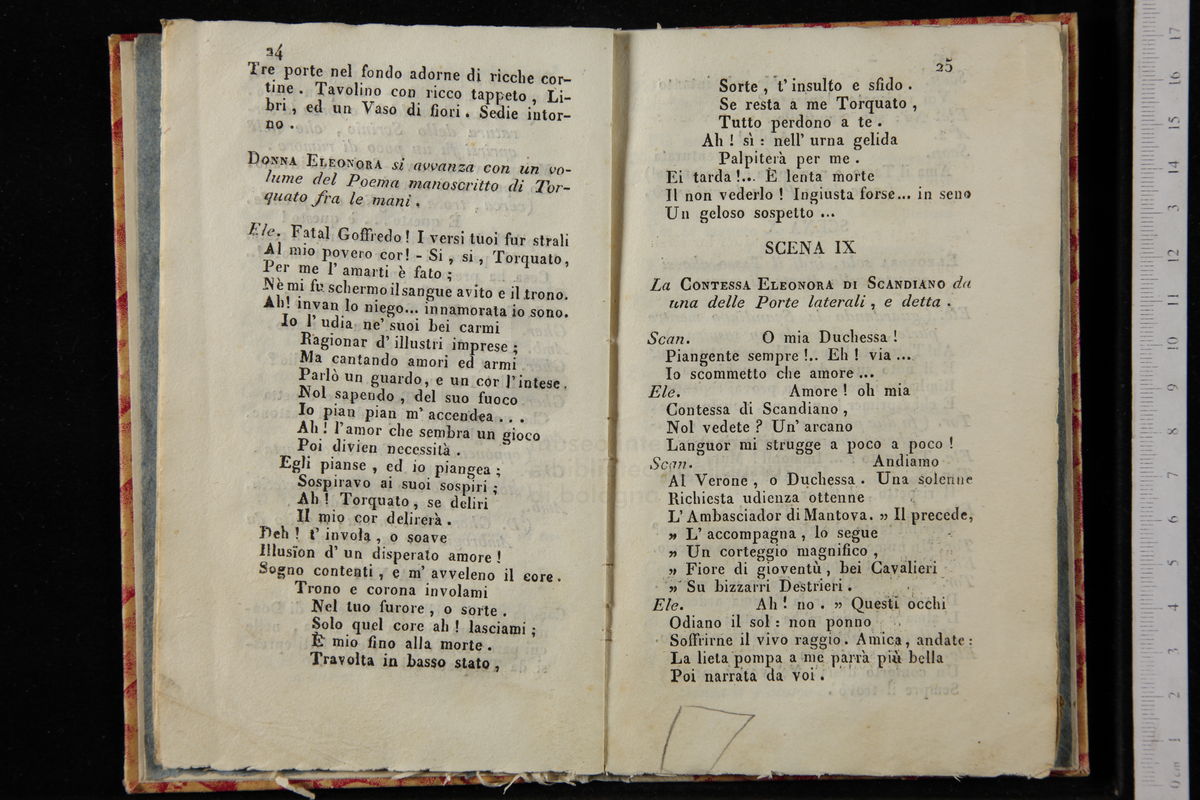 24
Tre porte nel fondo adorne di ricche cor-
tine. Tavolino con ricco tappeto, Li-
bri, ed un Vaso di fiori. Sedie intor-
no.
DONNA ELEONORA si avvanza con un vo-
lume del Poema manoscritto di Tor-
quato fra le mani.
Ele. Fatal Goffredo! I versi tuoi fur strali
Al mio povero cor! - Si, si, Torquato,
Per me l' amarti è fato;
Nè mi fu schermo il sangue avito e il trono.
Ah! invan lo niego... innamorata io sono.
Io l' udia ne' suoi bei carmi
Ragionar d' illustri imprese;
Ma cantando amori ed armi
Parlò un guardo, e un cor l' intese.
Nol sapendo, del suo fuoco
Io pian pian m' accendea...
Ah! l' amor che sembra un gioco
Poi divien necessità.
Egli pianse, ed io piangea;
Sospiravo ai suoi sospiri;
Ah! Torquato, se deliri
Il mio cor delirerà.
Deh! t' invola, o soave
Illusion d' un disperato amore!
Sogno contenti, e m' avveleno il core.
Trono e corona involami
Nel tuo furore, o sorte.
Solo quel core ah! lasciami;
È mio fino alla morte.
Travolta in basso stato,
25
Sorte, t' insulto e sfido.
Se resta a me Torquato,
Tutto perdono a te.
Ah! sì: nell' urna gelida
Palpiterà per me.
Ei tarda!... È lenta morte
Il non vederlo! Ingiusta forse... in seno
Un geloso sospetto...
SCENA IX
La CONTESSA ELEONORA DI SCANDIANO da
una delle Porte laterali, e detta.
Scan. O mia Duchessa!
Piangente sempre!.. Eh! via...
Io scommetto che amore...
Ele. Amore! oh mia
Contessa di Scandiano,
Nol vedete? Un' arcano
Languor mi strugge a poco a poco!
Scan. Andiamo
Al Verone, o Duchessa. Una solenne
Richiesta udienza ottenne
L' Ambasciador di Mantova. „ Il precede,
„ L' accompagna, lo segue
„ Un corteggio magnifico,
„ Fiore di gioventù, bei Cavalieri
„ Su bizzarri Destrieri.
Ele. Ah! no. „ Questi occhi
Odiano il sol: non ponno
Soffrirne il vivo raggio. Amica, andate:
La lieta pompa a me parrà più bella
Poi narrata da voi.